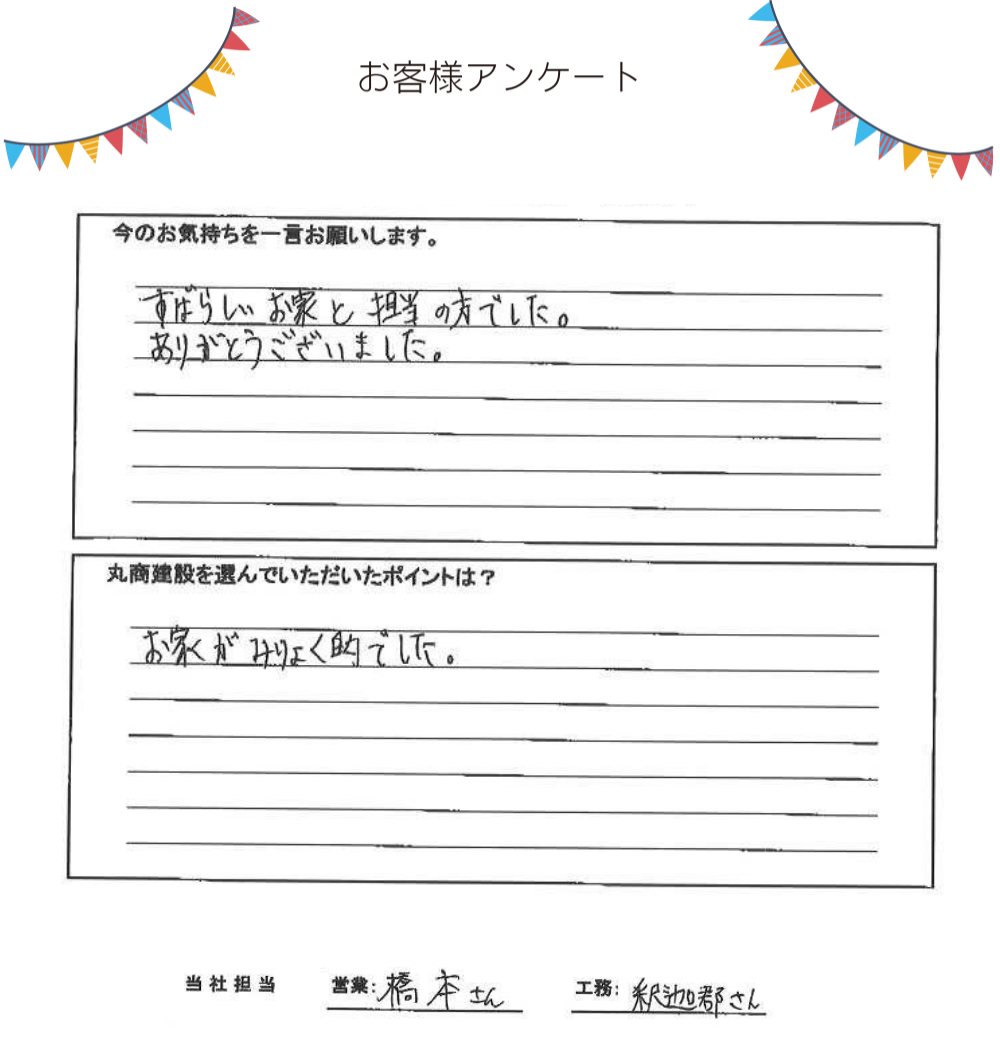 お客様アンケート
今のお気持ちを一言お願いします。
すばらしいお家と担当の方でした。
ありがとうございました。
丸商建設を選んでいただいたポイントは？
お家がみりょく的でした。
当社担当 営業:橋本さん 工務:釈迦郡さん